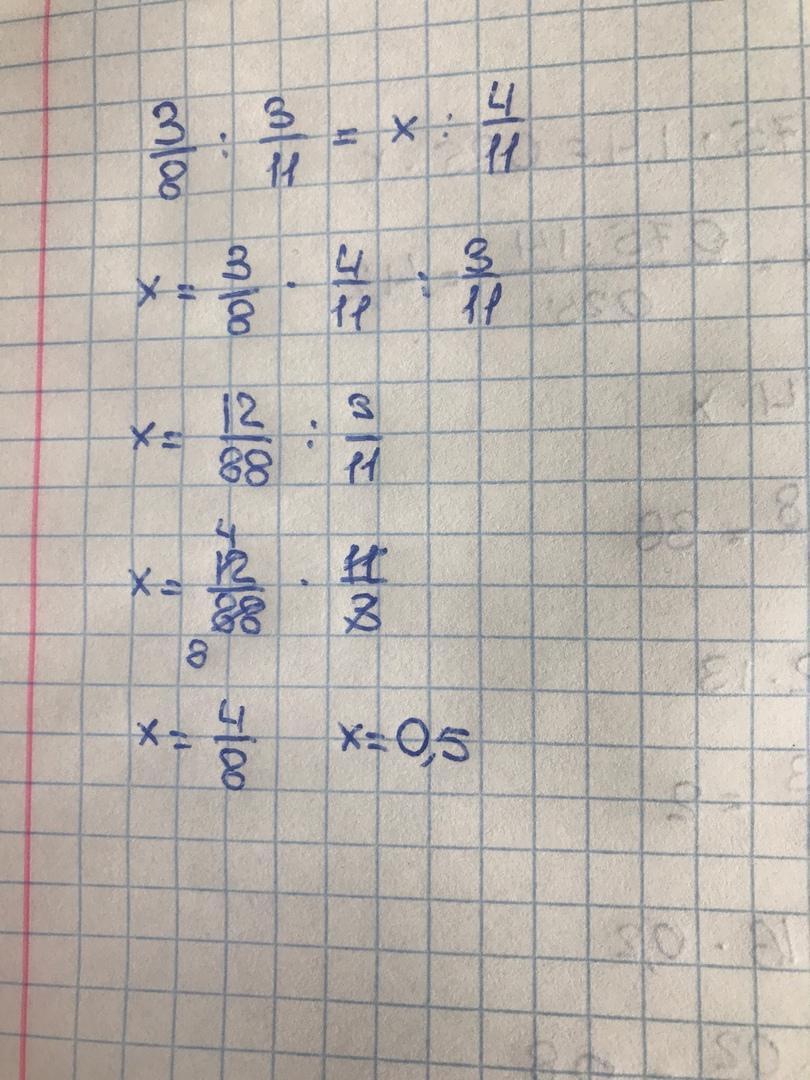 3/8 : 3/11 = x : 4/11
x = 3/8 · 4/11 : 3/11
x = 12/88 : 3/11
x = 12/88 · 11/3
4
8
x = 4/8 x = 0,5